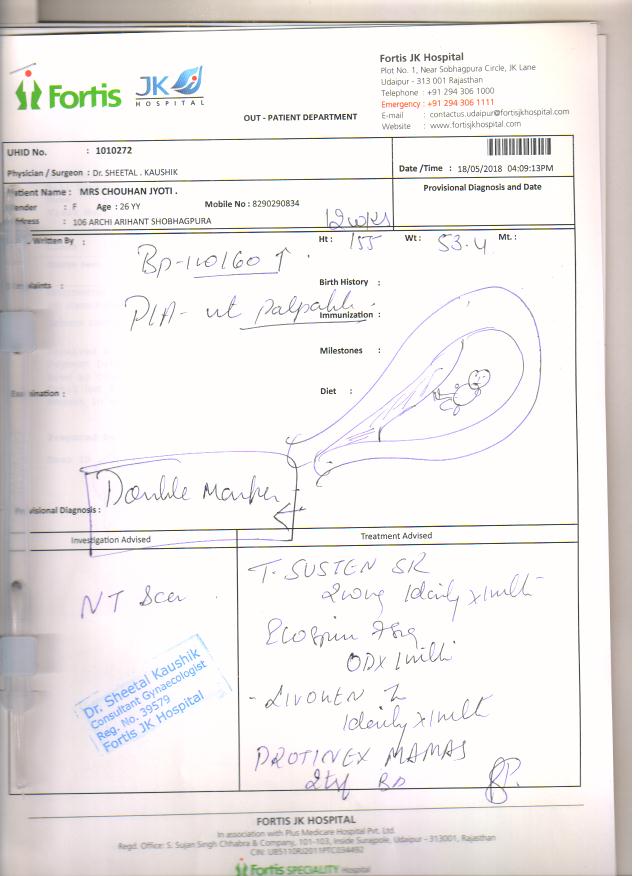 Fortis JK HOSPITAL
Fortis JK Hospital
Plot No. 1, Near Sobhagpura Circle, JK Lane
Udaipur - 313 001 Rajasthan
Telephone : +91 294 306 1000
Emergency : +91 294 306 1111
E-mail : contactus.udaipur@fortisjkhospital.com
Website : www.fortisjkhospital.com
OUT - PATIENT DEPARTMENT
UHID No. : 1010272
Physician / Surgeon : Dr. SHEETAL . KAUSHIK
Date /Time : 18/05/2018 04:09:13PM
Patient Name : MRS CHOUHAN JYOTI .
Provisional Diagnosis and Date
ender : F Age : 26 YY Mobile No : 8290290834
ress : 106 ARCHI ARIHANT SHOBHAGPURA
12 wks
Written By :
Ht : 155 Wt : 53.4 Mt. :
BP-110/60 ↑
Birth History :
laints :
P/A - ut palpable
Immunization :
Milestones :
Diet :
Examination :
Double Marker
visional Diagnosis :
Investigation Advised
Treatment Advised
NT Scan
T. SUSTEN SR
200mg 1daily x 1mth
Ecosprin 75mg
OD x 1mth
- LIVOGEN Z
1daily x 1mth
PROTINEX MAMAS
2tsf BD
Dr. Sheetal Kaushik
Consultant Gynaecologist
Reg. No. 39579
Fortis JK Hospital
FORTIS JK HOSPITAL
In association with Plus Medicare Hospital Pvt. Ltd.
Regd. Office: S. Sujan Singh Chhabra & Company, 101-103, Inside Surajpole, Udaipur - 313001, Rajasthan
CIN: U85110RJ2011PTC034492
Fortis SPECIALITY Hospital